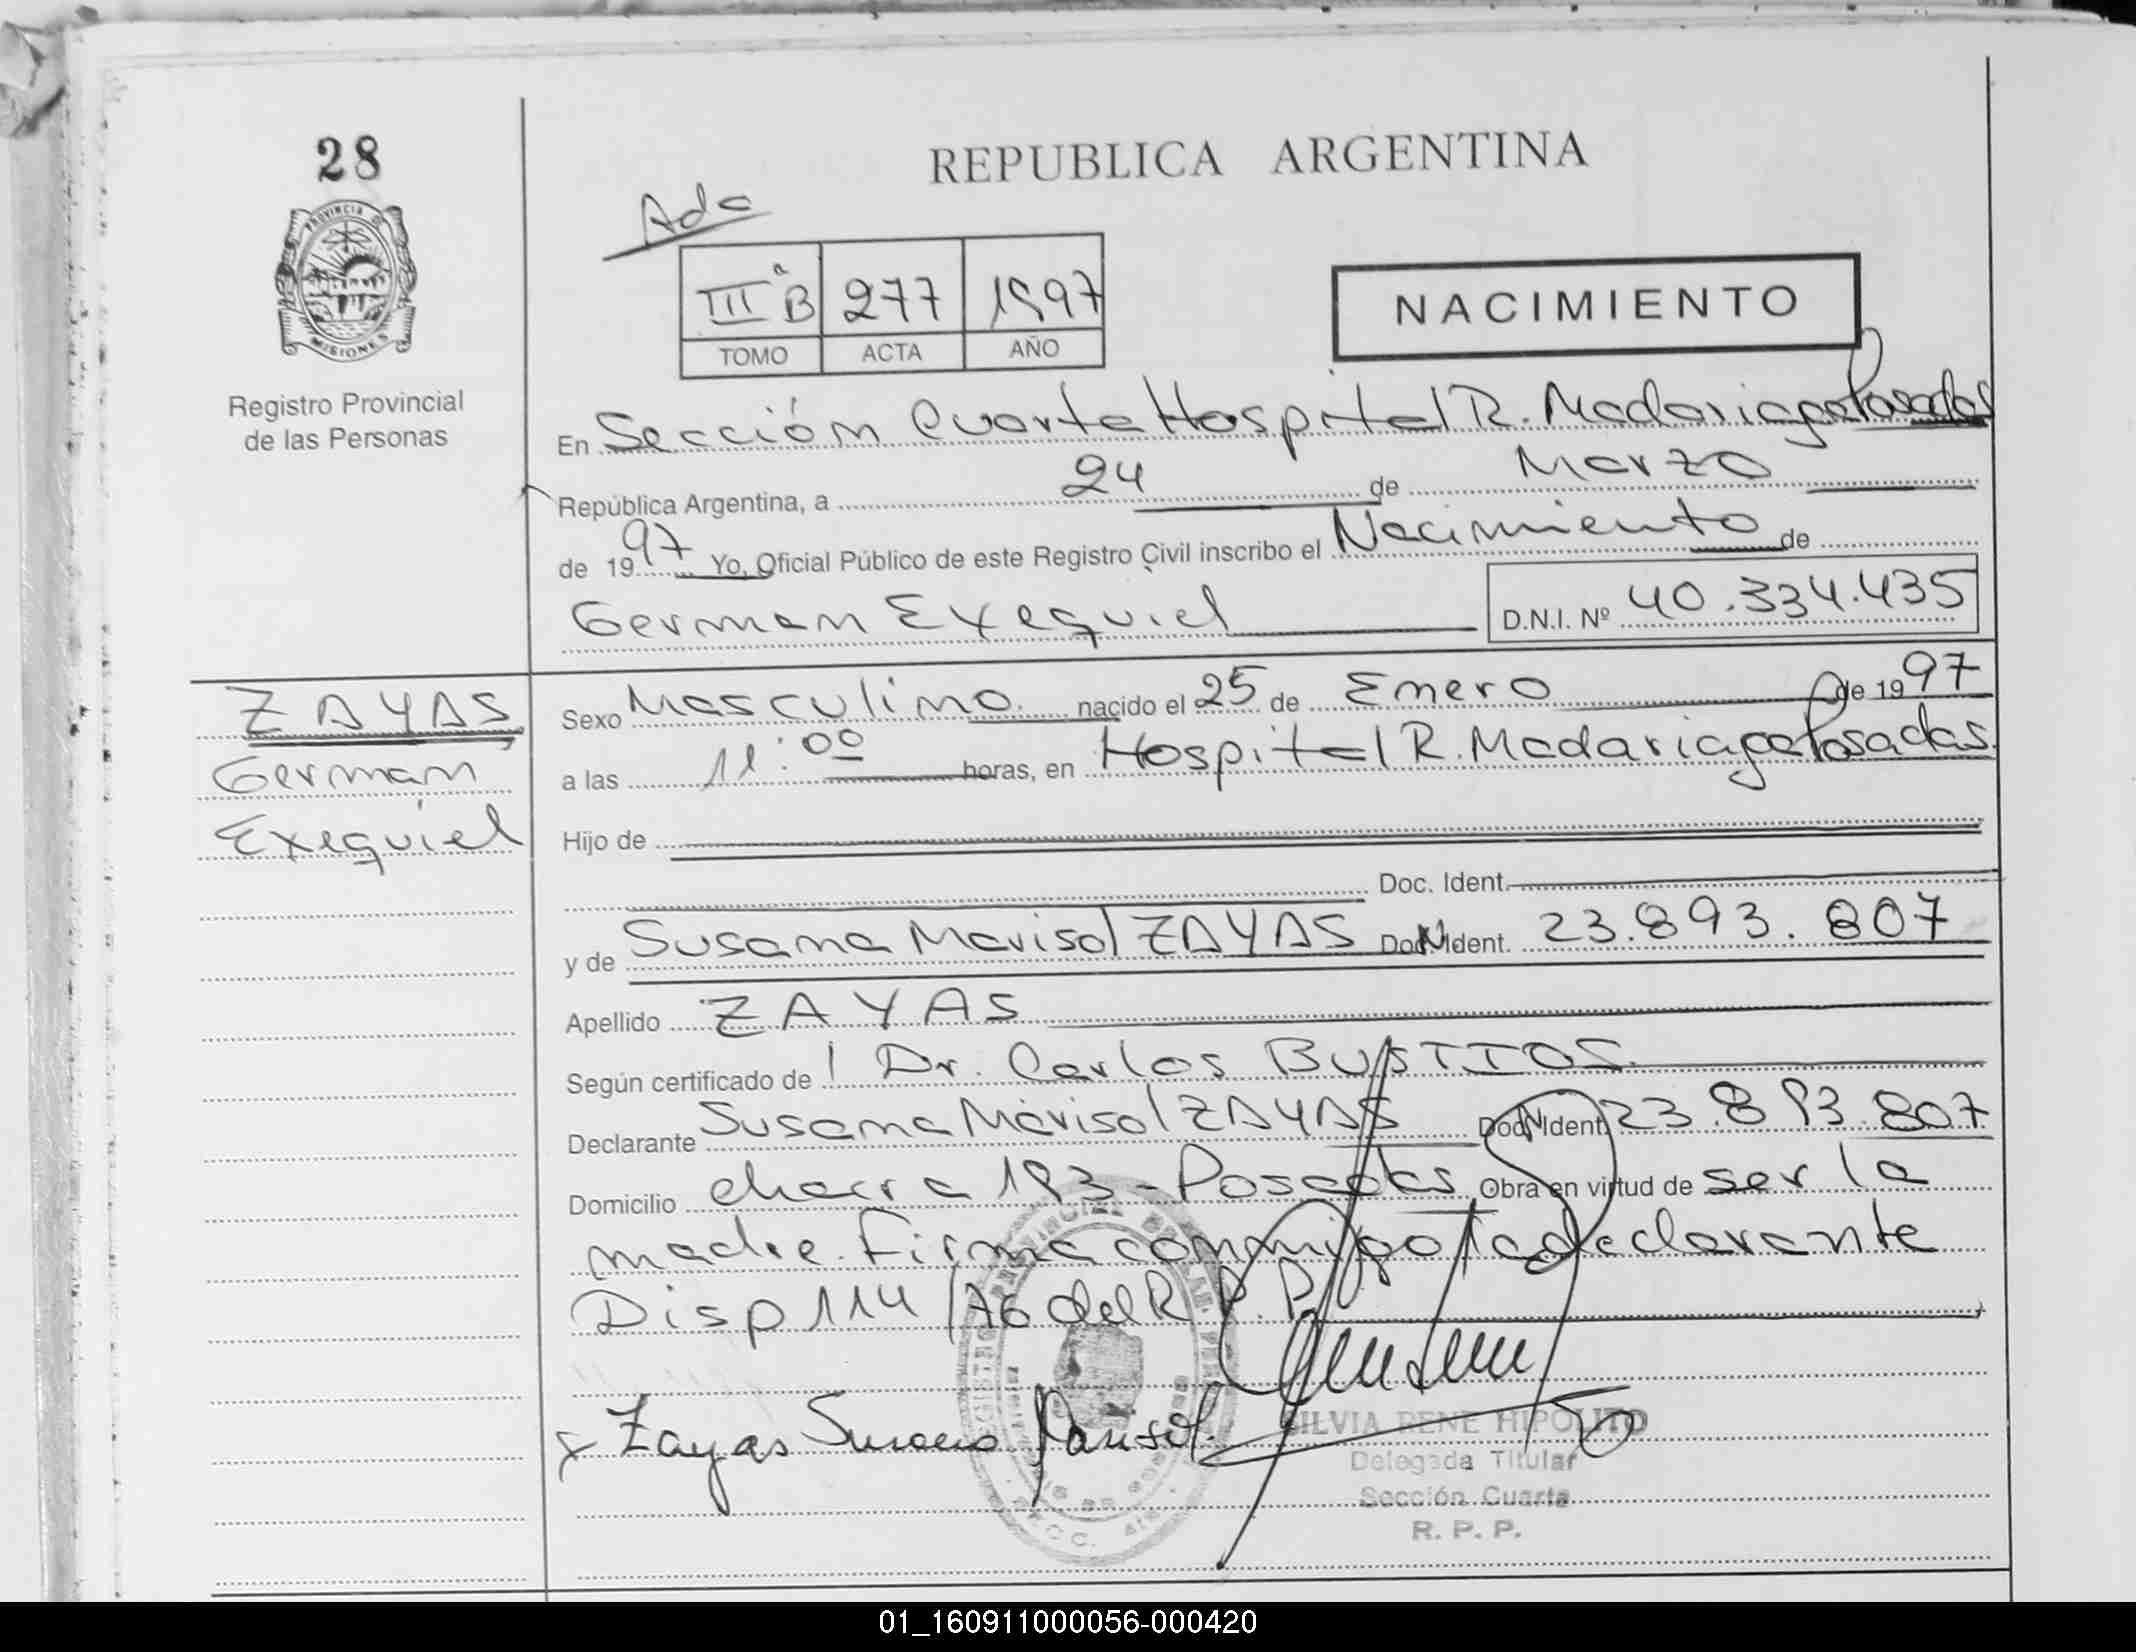 28
REPUBLICA ARGENTINA
PROVINCIA DE
MISIONES
Registro Provincial
de las Personas
Ada
III B a 277 1997
TOMO ACTA AÑO
NACIMIENTO
En Sección Cuarta Hospital R. Madariaga Posadas
República Argentina, a 24 de Marzo
de 1997 Yo, Oficial Público de este Registro Civil inscribo el Nacimiento de
German Exequiel D.N.I. Nº 40.334.435
ZAYAS
German
Exequiel
Sexo Masculino nacido el 25 de Enero de 1997
a las 11:00 horas, en Hospital R. Madariaga Posadas.
Hijo de
Doc. Ident.
y de Susana Marisol ZAYAS Doc. N Ident. 23.893.807
Apellido ZAYAS
Según certificado de Dr. Carlos BUSTIOS
Declarante Susana Marisol ZAYAS Doc. N Ident. 23.893.807
Domicilio chacra 193 - Posadas Obra en virtud de ser la
madre. Firma conmigo la declarante
Disp 114/76 del R.P.P.
x Zayas Susana Marisol.
SILVIA RENE HIPOLITO
Delegada Titular
Sección Cuarta
R. P. P.
01_160911000056-000420